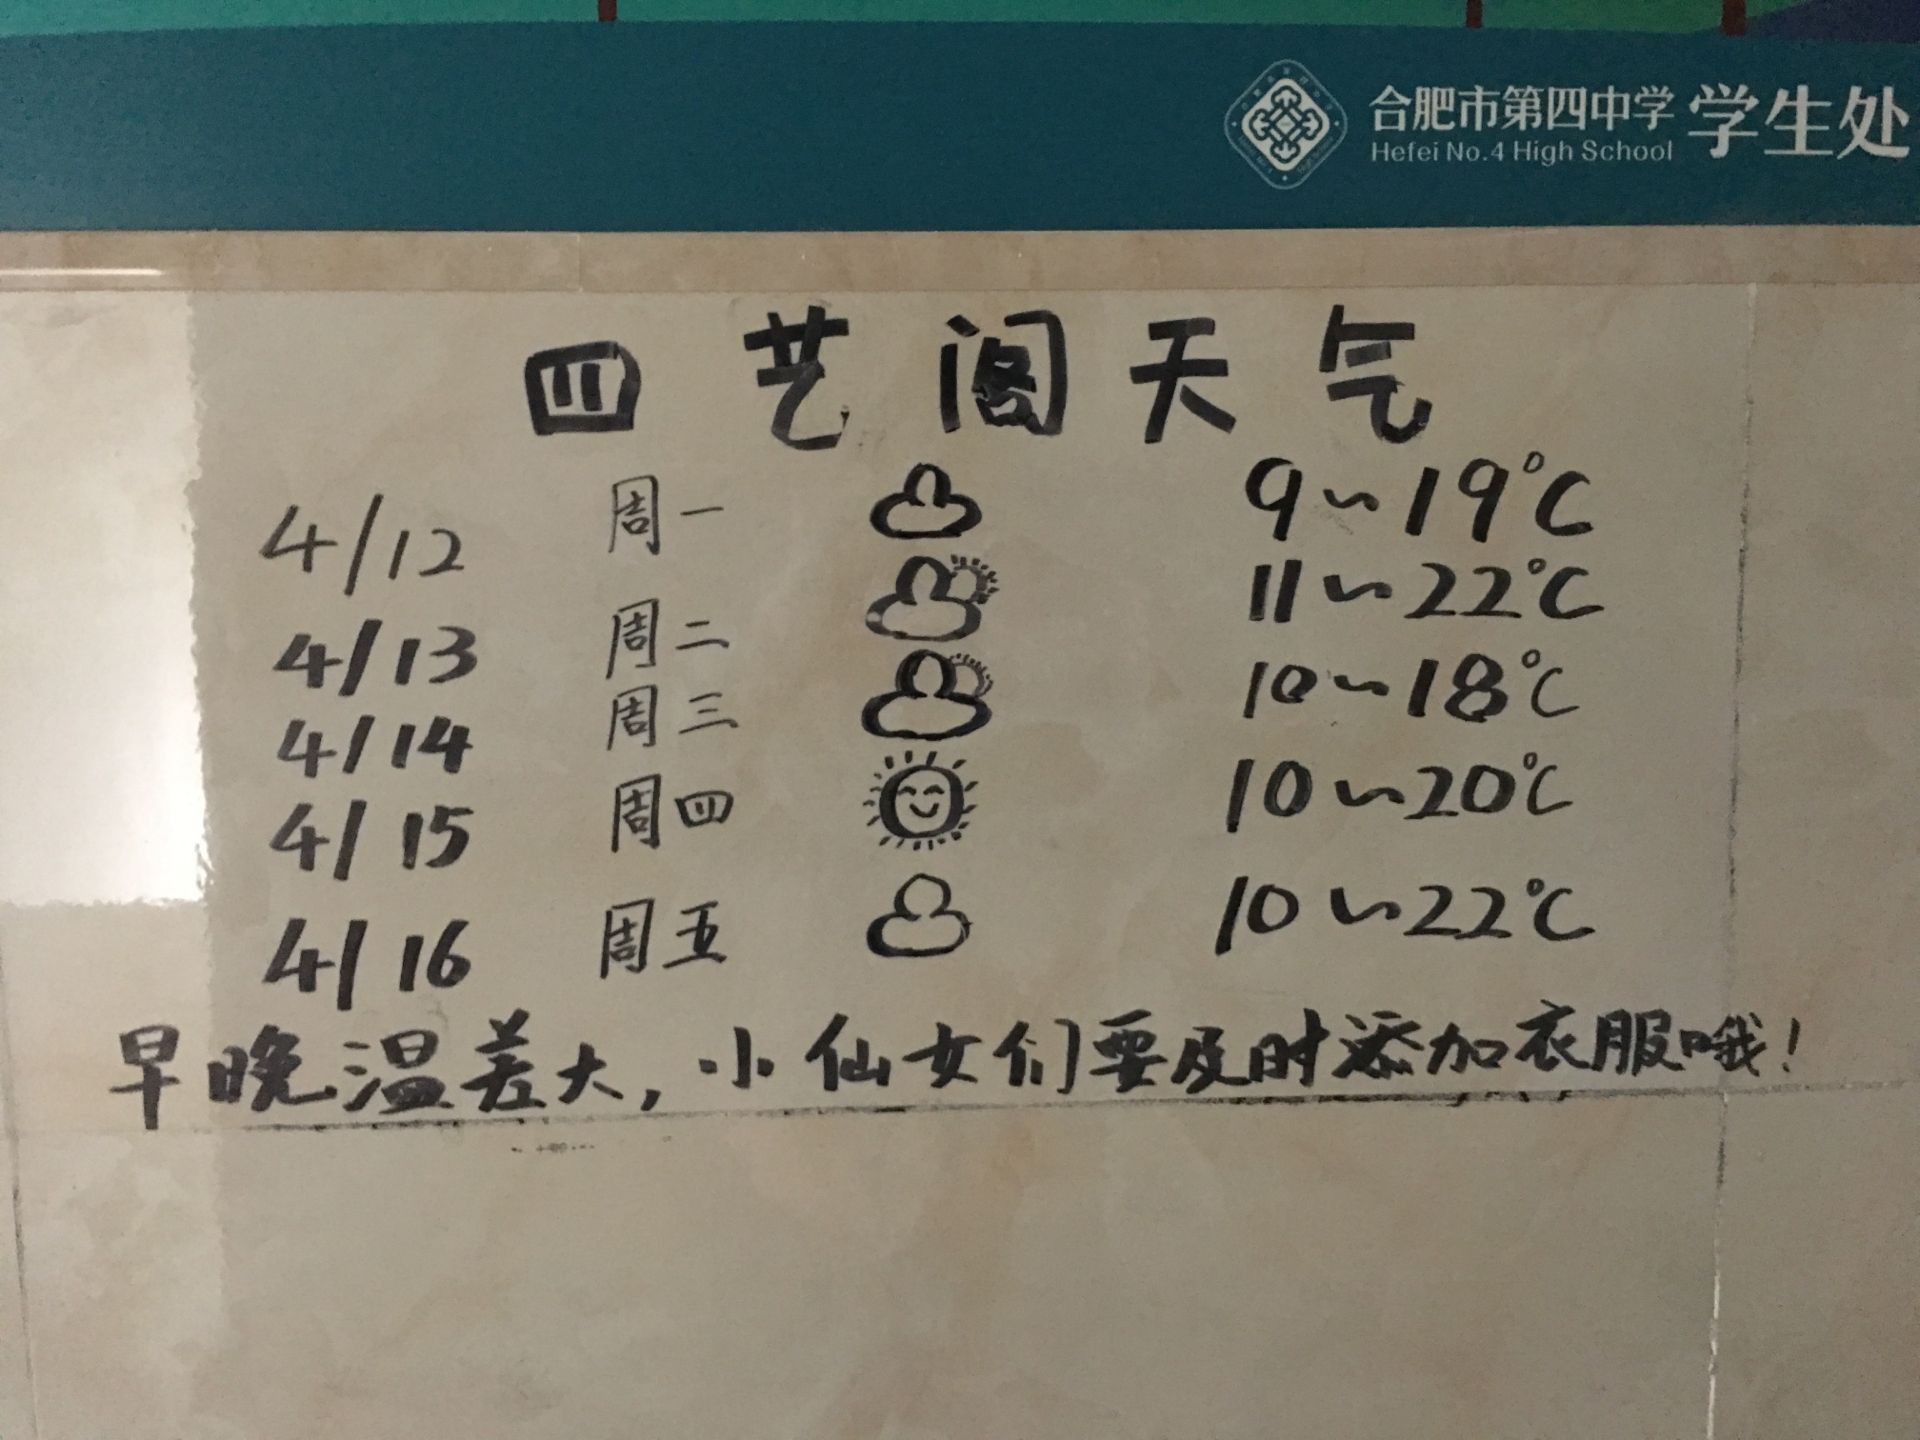 合肥市第四中学 学生处
Hefei No.4 High School
四艺阁天气
4/12 周一 9~19°C
4/13 周二 11~22°C
4/14 周三 10~18°C
4/15 周四 10~20°C
4/16 周五 10~22°C
早晚温差大,小仙女们要及时添加衣服哦!